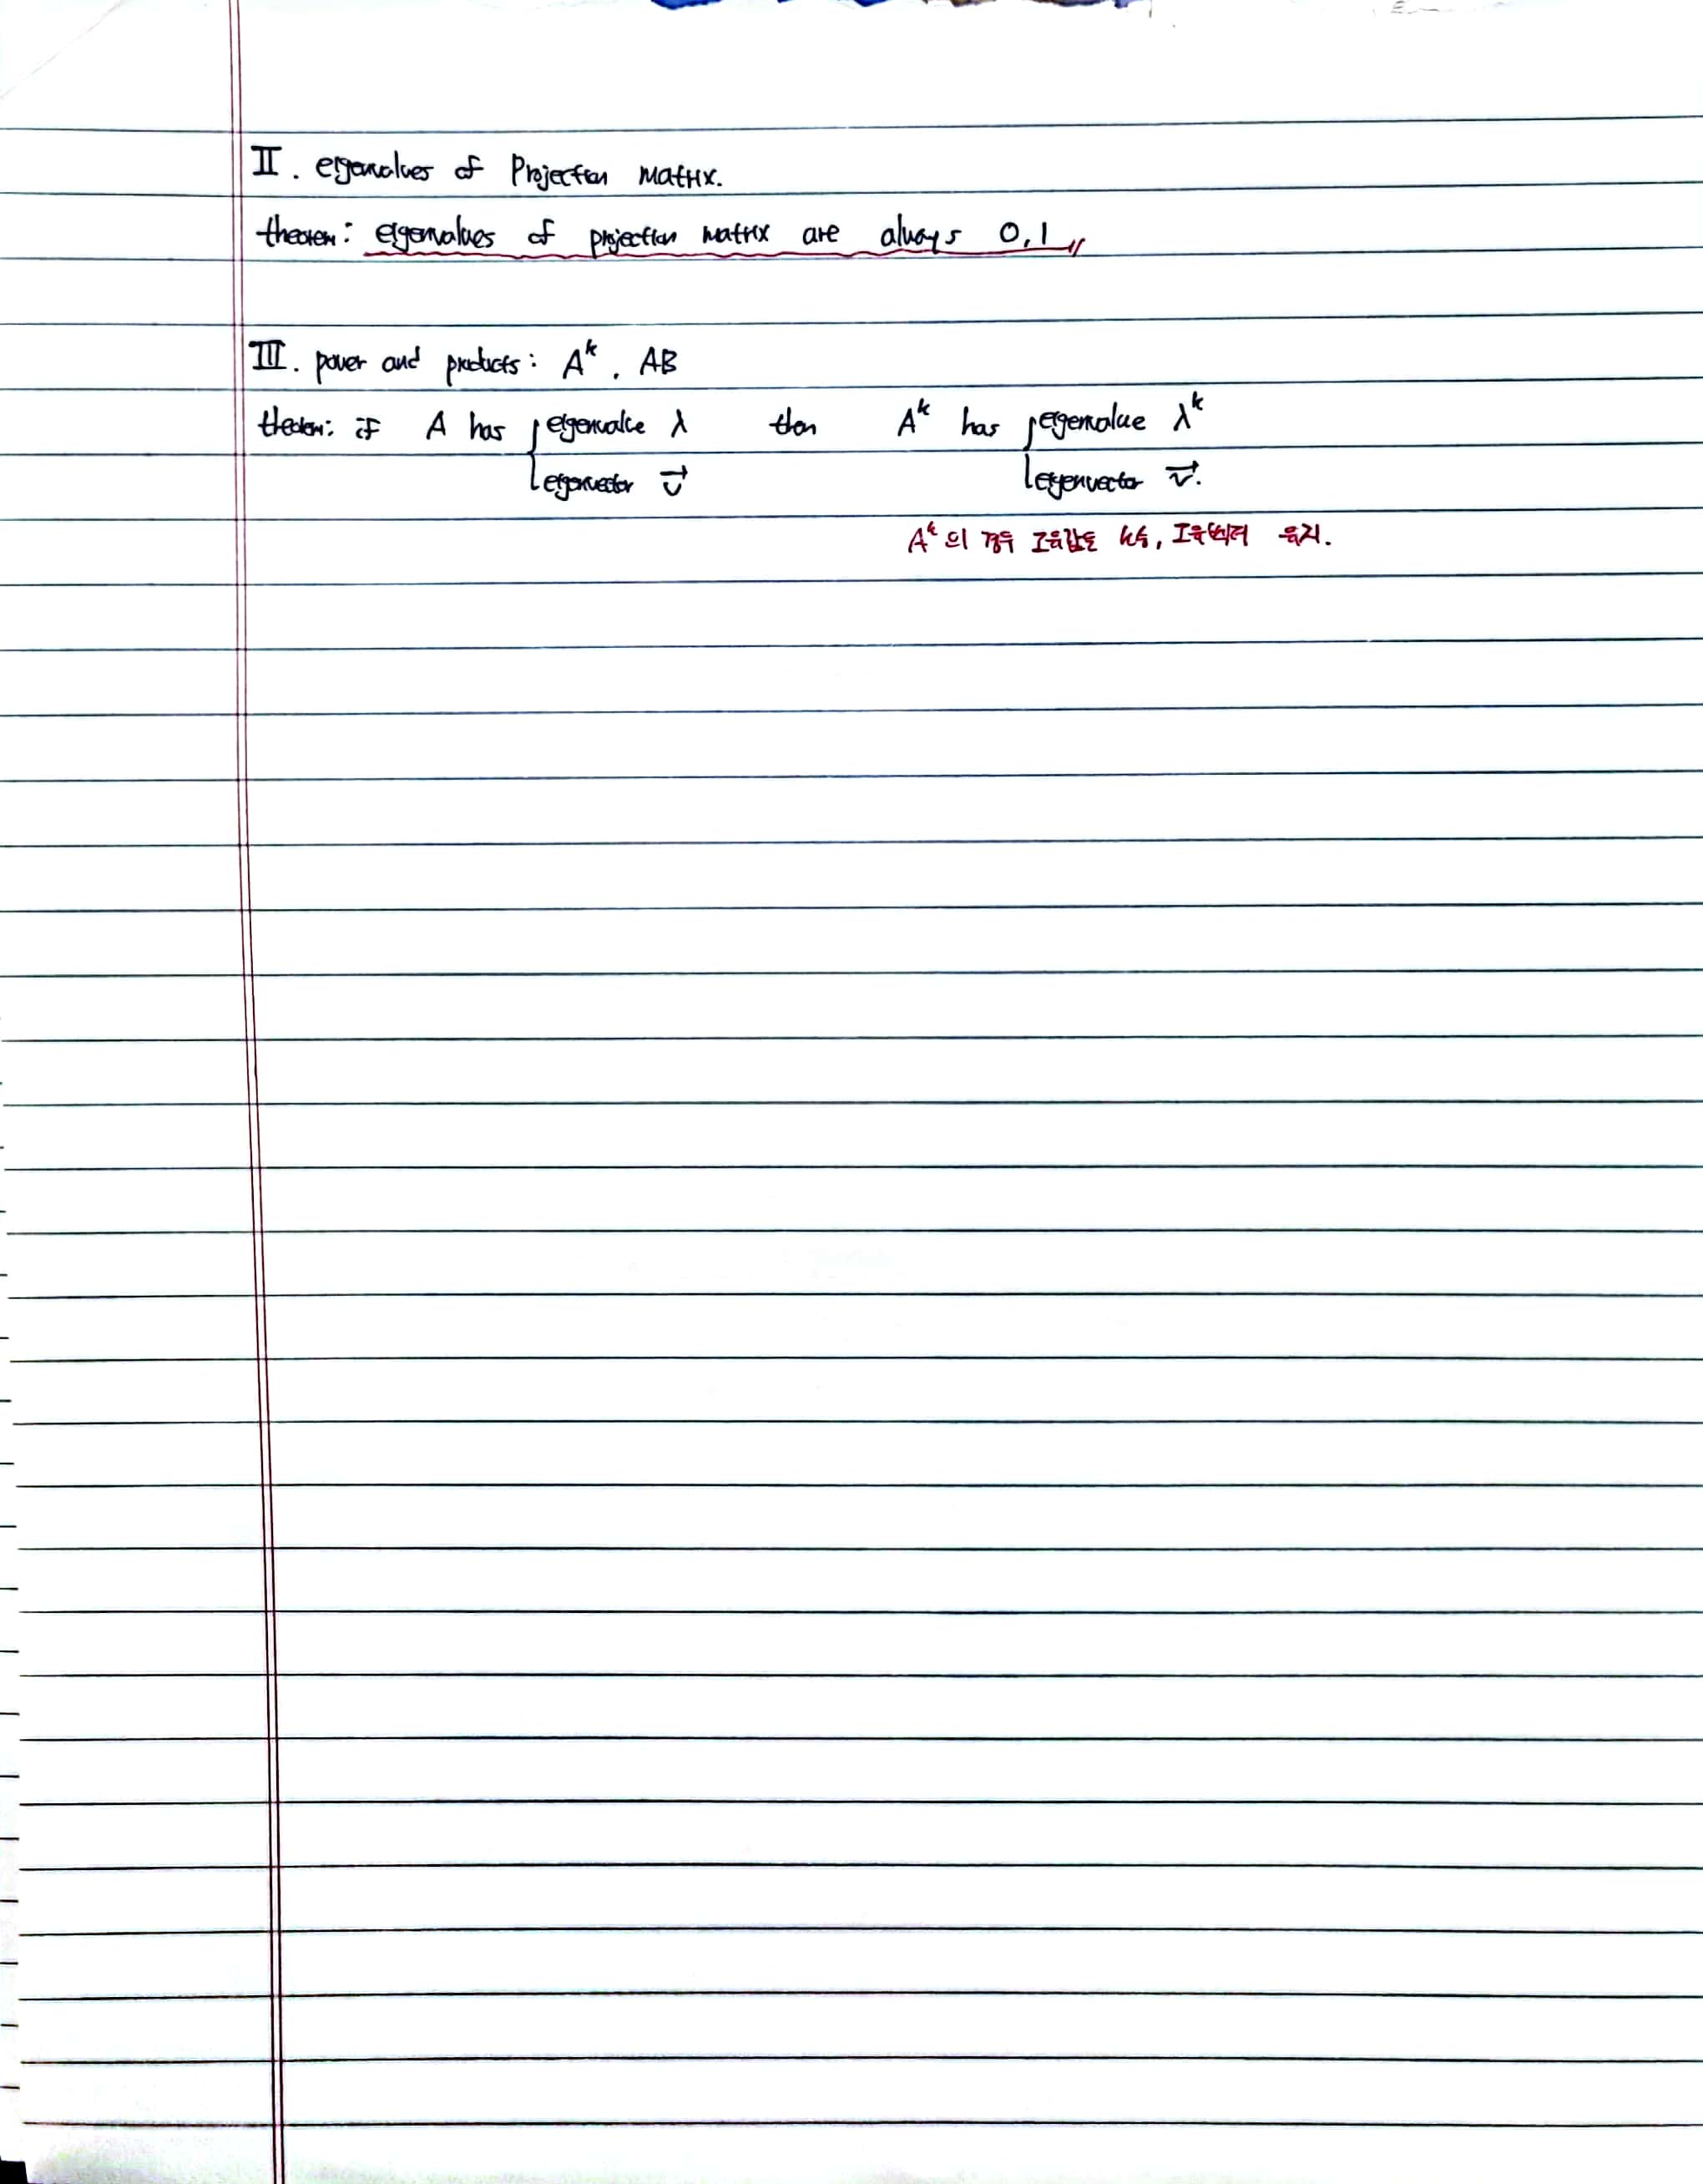 II. eigenvalues of Projection matrix.
theorem: eigenvalues of projection matrix are always 0,1
III. power and products: A^k, AB
theorem: if A has { eigenvalue λ then A^k has { eigenvalue λ^k
eigenvector v⃗ eigenvector v⃗.
A^k의 경우 고유값도 k승, 고유벡터 유지.